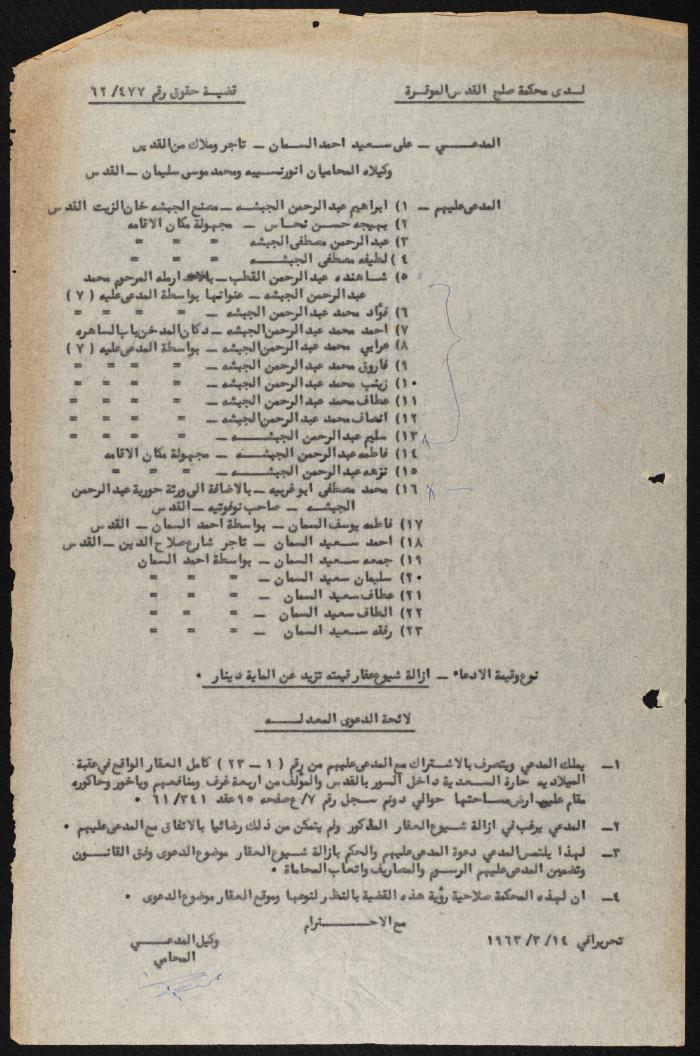 لدى محكمة صلح القدس الموقرة
قضية حقوق رقم ٤٧٧/ ٦٢
المدعــي ــ على سعيد احمد السمان ــ تاجر وملاك من القدس
وكيلاه المحاميان انور نسيبه ومحمد موسى سليمان ــ القدس
المدعى عليهم ــ ١) ابراهيم عبد الرحمن الجبشه ــ مصنع الجبشه خان الزيت القدس
٢) بهيجه حسن نحاس ــ مجهولة مكان الاقامه
٣) عبد الرحمن مصطفى الجبشه = = =
٤) لطيفه مصطفى الجبشــه = = =
٥) شاهنده عبد الرحمن القطب ــ ارمله المرحوم محمد
عبد الرحمن الجبشه ــ عنوانها بواسطة المدعى عليه ( ٧ )
٦) فؤاد محمد عبد الرحمن الجبشه ــ = = = =
٧) احمد محمد عبد الرحمن الجبشه ــ دكان المدخن باب الساهره
٨) عرابي محمد عبد الرحمن الجبشه ــ بواسطة المدعى عليه ( ٧ )
٩) فاروق محمد عبد الرحمن الجبشه ــ = = = =
١٠) زينب محمد عبد الرحمن الجبشه ــ = = = =
١١) عطاف محمد عبد الرحمن الجبشه ــ = = = =
١٢) انصاف محمد عبد الرحمن الجبشه ــ = = = =
١٣) سليم عبد الرحمن الجبشــه ــ = = = =
١٤) فاطمه عبد الرحمن الجبشــه ــ مجهولة مكان الاقامه
١٥) نزهه عبد الرحمن الجبشــه ــ = = =
١٦) محمد مصطفى ابو غربيه ــ بالاضافة الى ورثة حورية عبد الرحمن
الجبشه ــ صاحب نوفوتيه ــ القدس
١٧) فاطمه يوسف السمان ــ بواسطة احمد السمان ــ القدس
١٨) احمد سعيد السمان ــ تاجر شارع صلاح الدين ــ القدس
١٩) جمعه سعيد السمان ــ بواسطة احمد السمان
٢٠) سليمان سعيد السمان ــ = = =
٢١) عطاف سعيد السمان ــ = = =
٢٢) الطاف سعيد السمان ــ = = =
٢٣) رفقه سعيد السمان ــ = = =
نوع وقيمة الادعاء ــ ازالة شيوع عقار قيمته تزيد عن الماية دينار .
لائحة الدعوى المعدلــه
١ــ يملك المدعي ويتصرف بالاشتراك مع المدعى عليهم من رقم ( ١ ــ ٢٣ ) كامل العقار الواقع في عقبة
الميلاديه حارة السعدية داخل السور بالقدس والمؤلف من اربعة غرف ومنافعهم وياخور وحاكوره
مقام عليها ارض مساحتها حوالي دونم سجل رقم ٧/ع صفحه ٩٥ عقد ٣٤١/ ٦١
٢ــ المدعي يرغب في ازالة شيوع العقار المذكور ولم يتمكن من ذلك رضائيا بالاتفاق مع المدعى عليهم .
٣ــ لهذا يلتمس المدعي دعوة المدعى عليهم والحكم بازالة شيوع العقار موضوع الدعوى وفق القانــون
وتضمين المدعى عليهم الرسوم والمصاريف واتعاب المحاماة .
٤ــ ان لهذه المحكمة صلاحية رؤية هذه القضية بالنظر لنوعها وموقع العقار موضوع الدعوى .
مع الاحــتــرام
تحريرا في ١٤/ ٣/ ١٩٦٣
وكيل المدعــي
المحامي